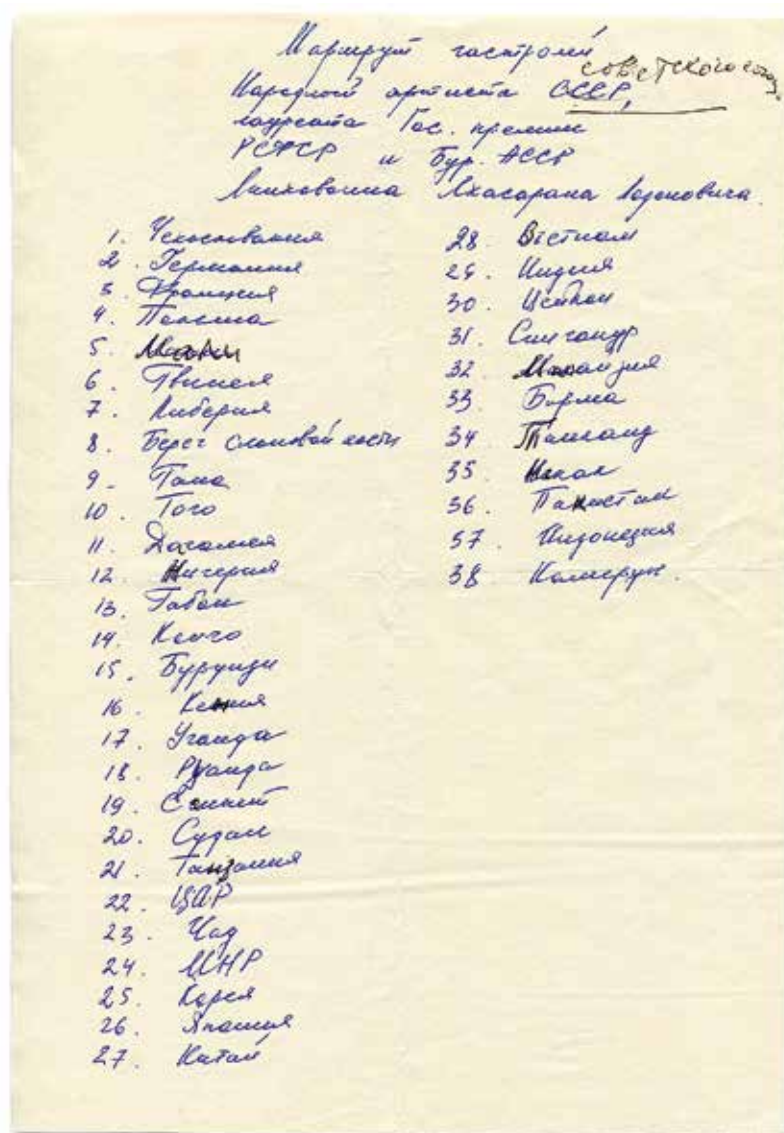 Маршрут гастролей
советского союз
Народного артиста СССР,
лауреата Гос. премии
РСФСР и Бур. АССР
Линховоина Лхасарана Лодоновича.
1. Чехословакия
2. Германия
3. Франция
4. Польша
5. Мали
6. Гвинея
7. Либерия
8. Берег слоновой кости
9. Гана
10. Того
11. Дагомея
12. Нигерия
13. Габон
14. Конго
15. Бурунди
16. Кения
17. Уганда
18. Руанда
19.
20. Судан
21. Танзания
22. ЦАР
23. Чад
24. МНР
25. Корея
26. Япония
27. Китай
28. Вьетнам
29. Индия
30. Цейлон
31. Сингапур
32. Малайзия
33. Бирма
34. Таиланд
35. Непал
36. Пакистан
37. Индонезия
38 Камерун.